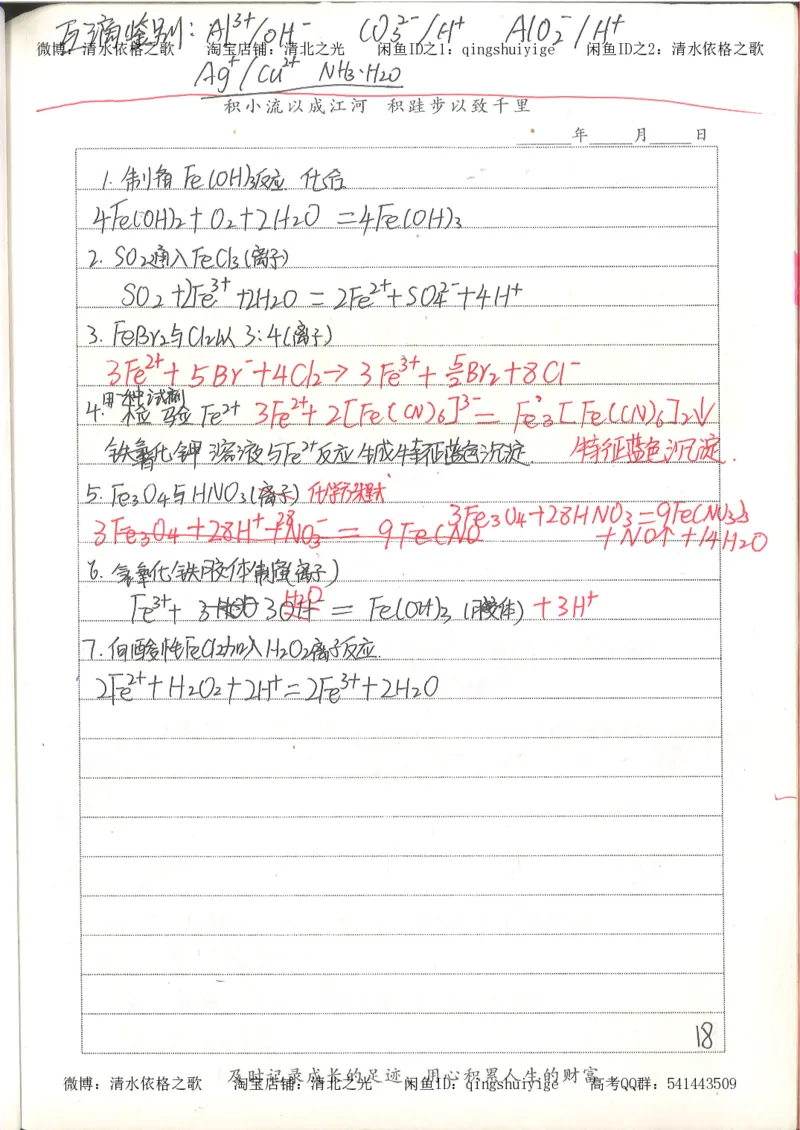 互滴鉴别：Al³⁺/OH⁻ CO₃²⁻/H⁺ AlO₂⁻/H⁺
微博：清水依格之歌 淘宝店铺：清北之光 闲鱼ID之1：qingshuiyige 闲鱼ID之2：清水依格之歌
Ag⁺/Cu²⁺ NH₃·H₂O
积小流以成江河 积跬步以致千里
年 月 日
1. 制备Fe(OH)₃反应 化合
4Fe(OH)₂+O₂+2H₂O=4Fe(OH)₃
2. SO₂通入FeCl₃(离子)
SO₂+2Fe³⁺+2H₂O=2Fe²⁺+SO₄²⁻+4H⁺
3. FeBr₂与Cl₂以3:4(离子)
3Fe²⁺+5Br⁻+4Cl₂→3Fe³⁺+5/2Br₂+8Cl⁻
用一种试剂
4. 检验Fe²⁺ 3Fe²⁺+2[Fe(CN)₆]³⁻=Fe₃[Fe(CN)₆]₂↓
铁氰化钾溶液与Fe²⁺反应生成特征蓝色沉淀. 特征蓝色沉淀.
5. Fe₃O₄与HNO₃(离子) 化学方程式
3Fe₃O₄+28HNO₃=9Fe(NO₃)₃
3Fe₃O₄+28H⁺+28NO₃⁻=9Fe(NO +NO↑+14H₂O
6. 氢氧化铁胶体制备(离子)
Fe³⁺+3H₂O 3OH⁻ H₂O = Fe(OH)₃(胶体)+3H⁺
7. 向酸性FeCl₂加入H₂O₂离子反应.
2Fe²⁺+H₂O₂+2H⁺=2Fe³⁺+2H₂O
18
及时记录成长的足迹 用心积累人生的财富
微博：清水依格之歌 淘宝店铺：清北之光 闲鱼ID：qingshuiyige 高考QQ群：541443509